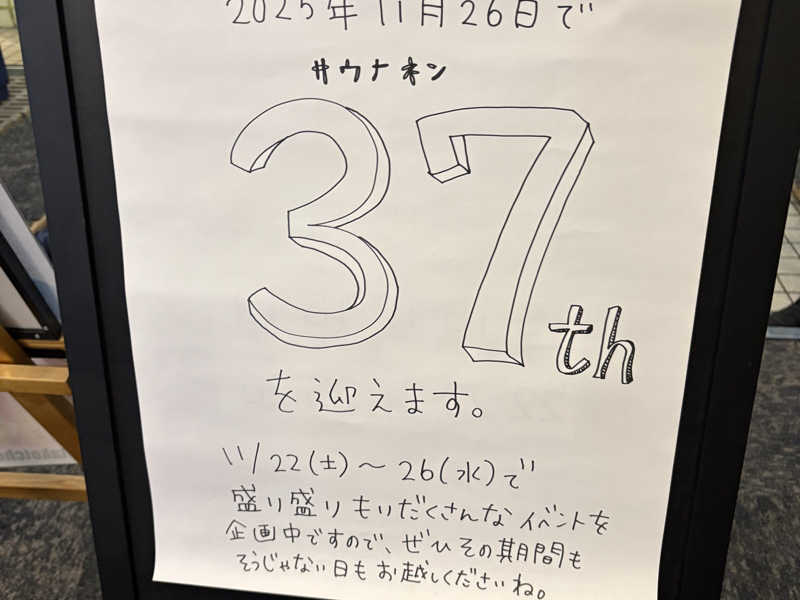 2025年11月26日で
サウナネン
37th
を迎えます。
11/22(土)〜26(水)で
盛り盛りもりだくさんなイベントを
企画中ですので、ぜひその期間も
そうじゃない日もお越しくださいね。